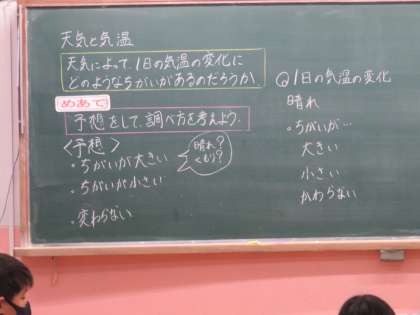 天気と気温
天気によって、1日の気温の変化に
どのようなちがいがあるのだろうか。
めあて
予想をして、調べ方を考えよう。
<予想>
・ちがいが大きい
晴れ?
くもり?
・ちがいが小さい
・変わらない
Q1日の気温の変化
晴れ
・ちがいが…
大きい
小さい
かわらない